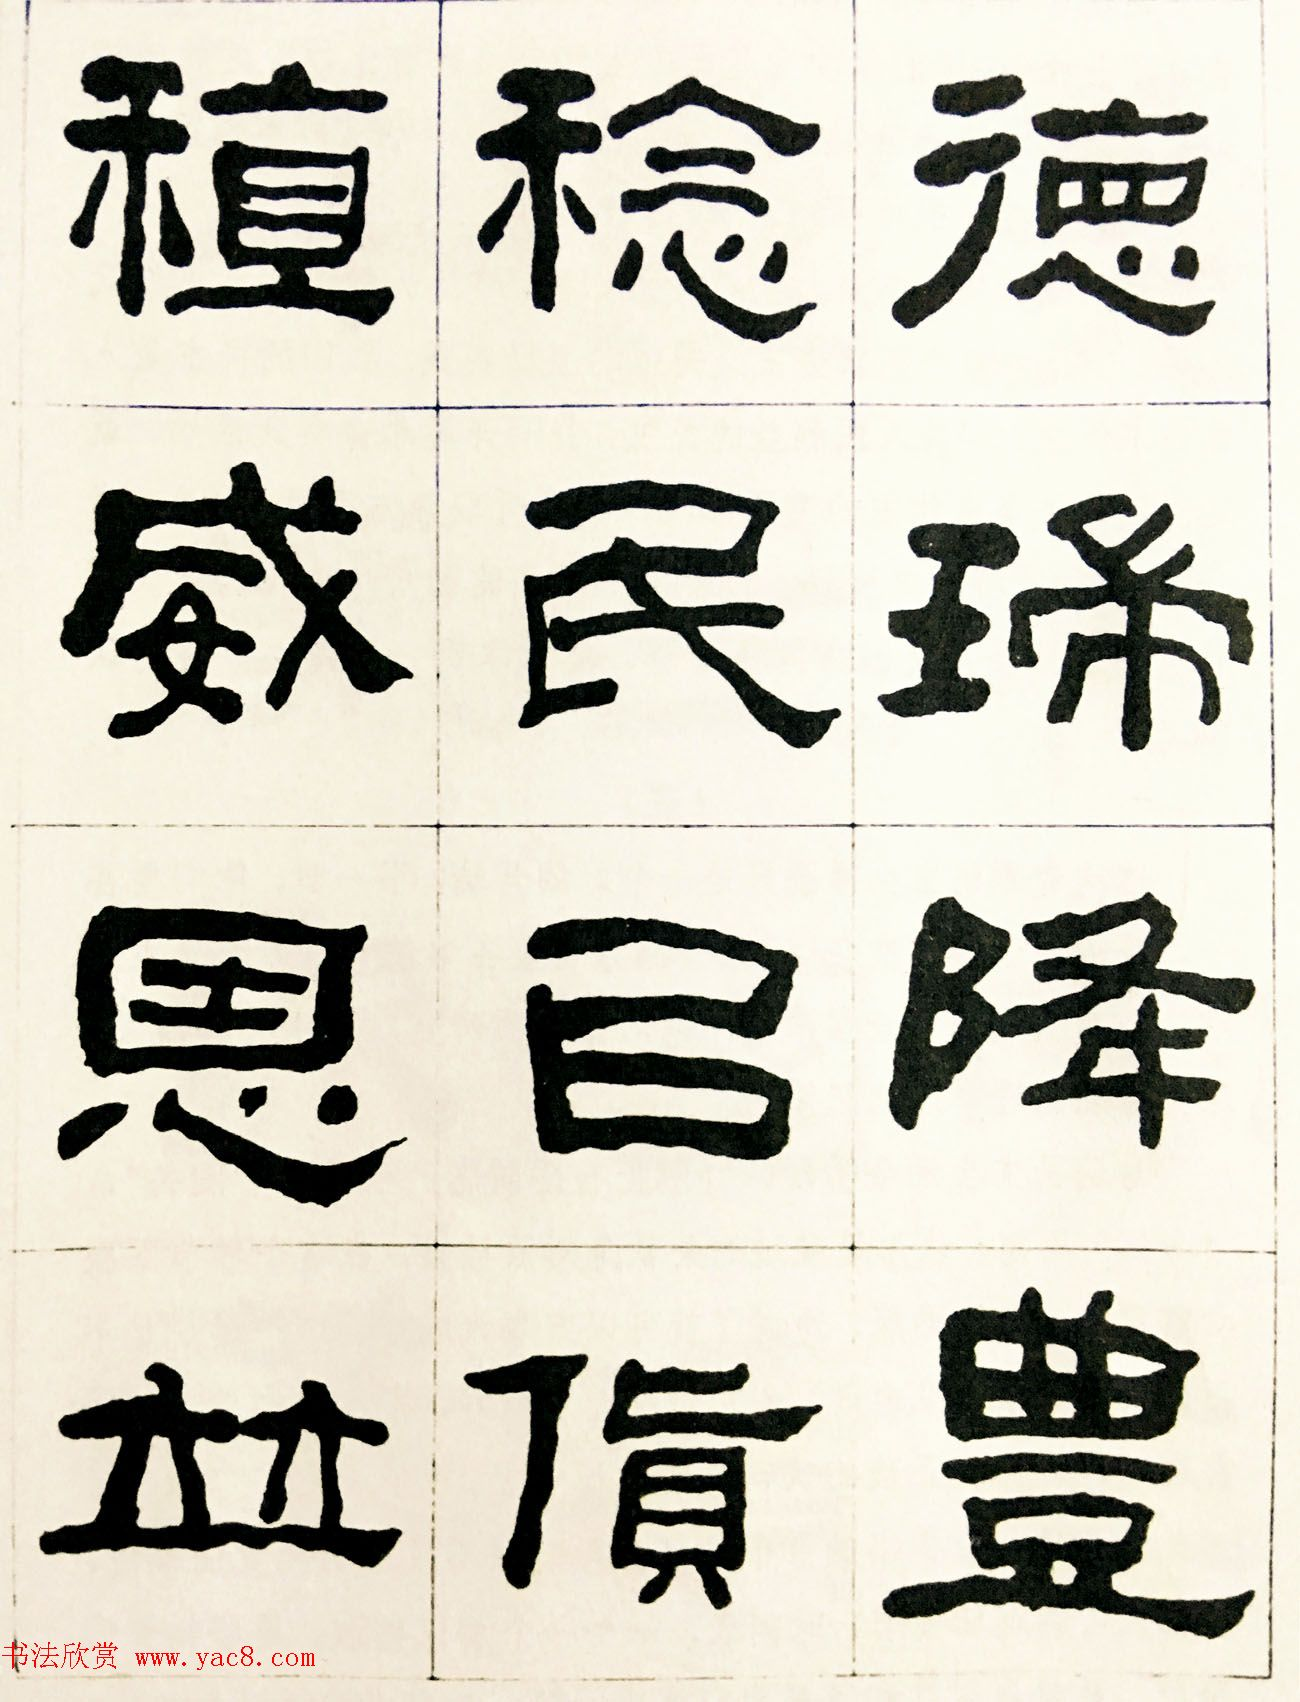 德瑞降豐
稔民㠯貨
稙威恩並
书法欣赏 www.yac8.com